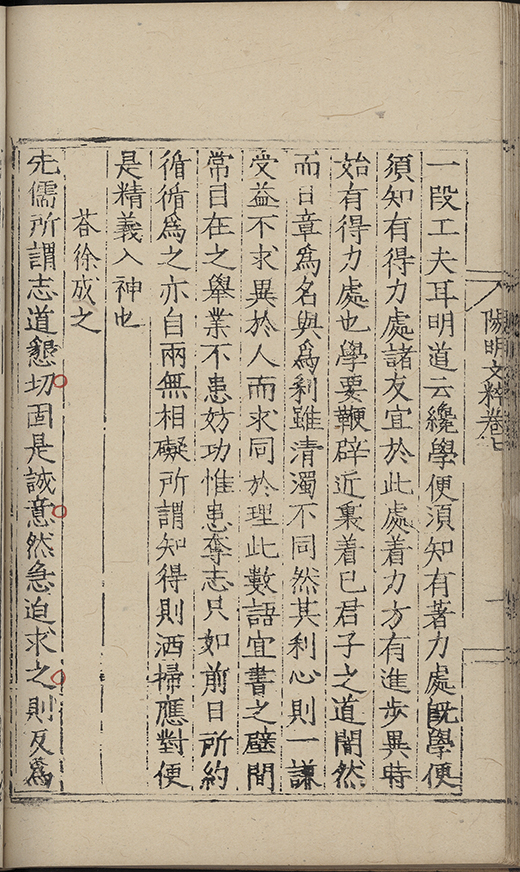 陽明文粹卷七
一段工夫耳明道云纔學便須知有著力處既學便
須知有得力處諸友宜於此處着力方有進步異時
始有得力處也學要鞭辟近裏着己君子之道闇然
而日章為名與為利雖清濁不同然其利心則一謙
受益不求異於人而求同於理此數語宜書之壁間
常目在之舉業不患妨功惟患奪志只如前日所約
循循為之亦自兩無相礙所謂知得則洒掃應對便
是精義入神也
荅徐成之
先儒所謂志道懇切固是誠意然急迫求之則反為